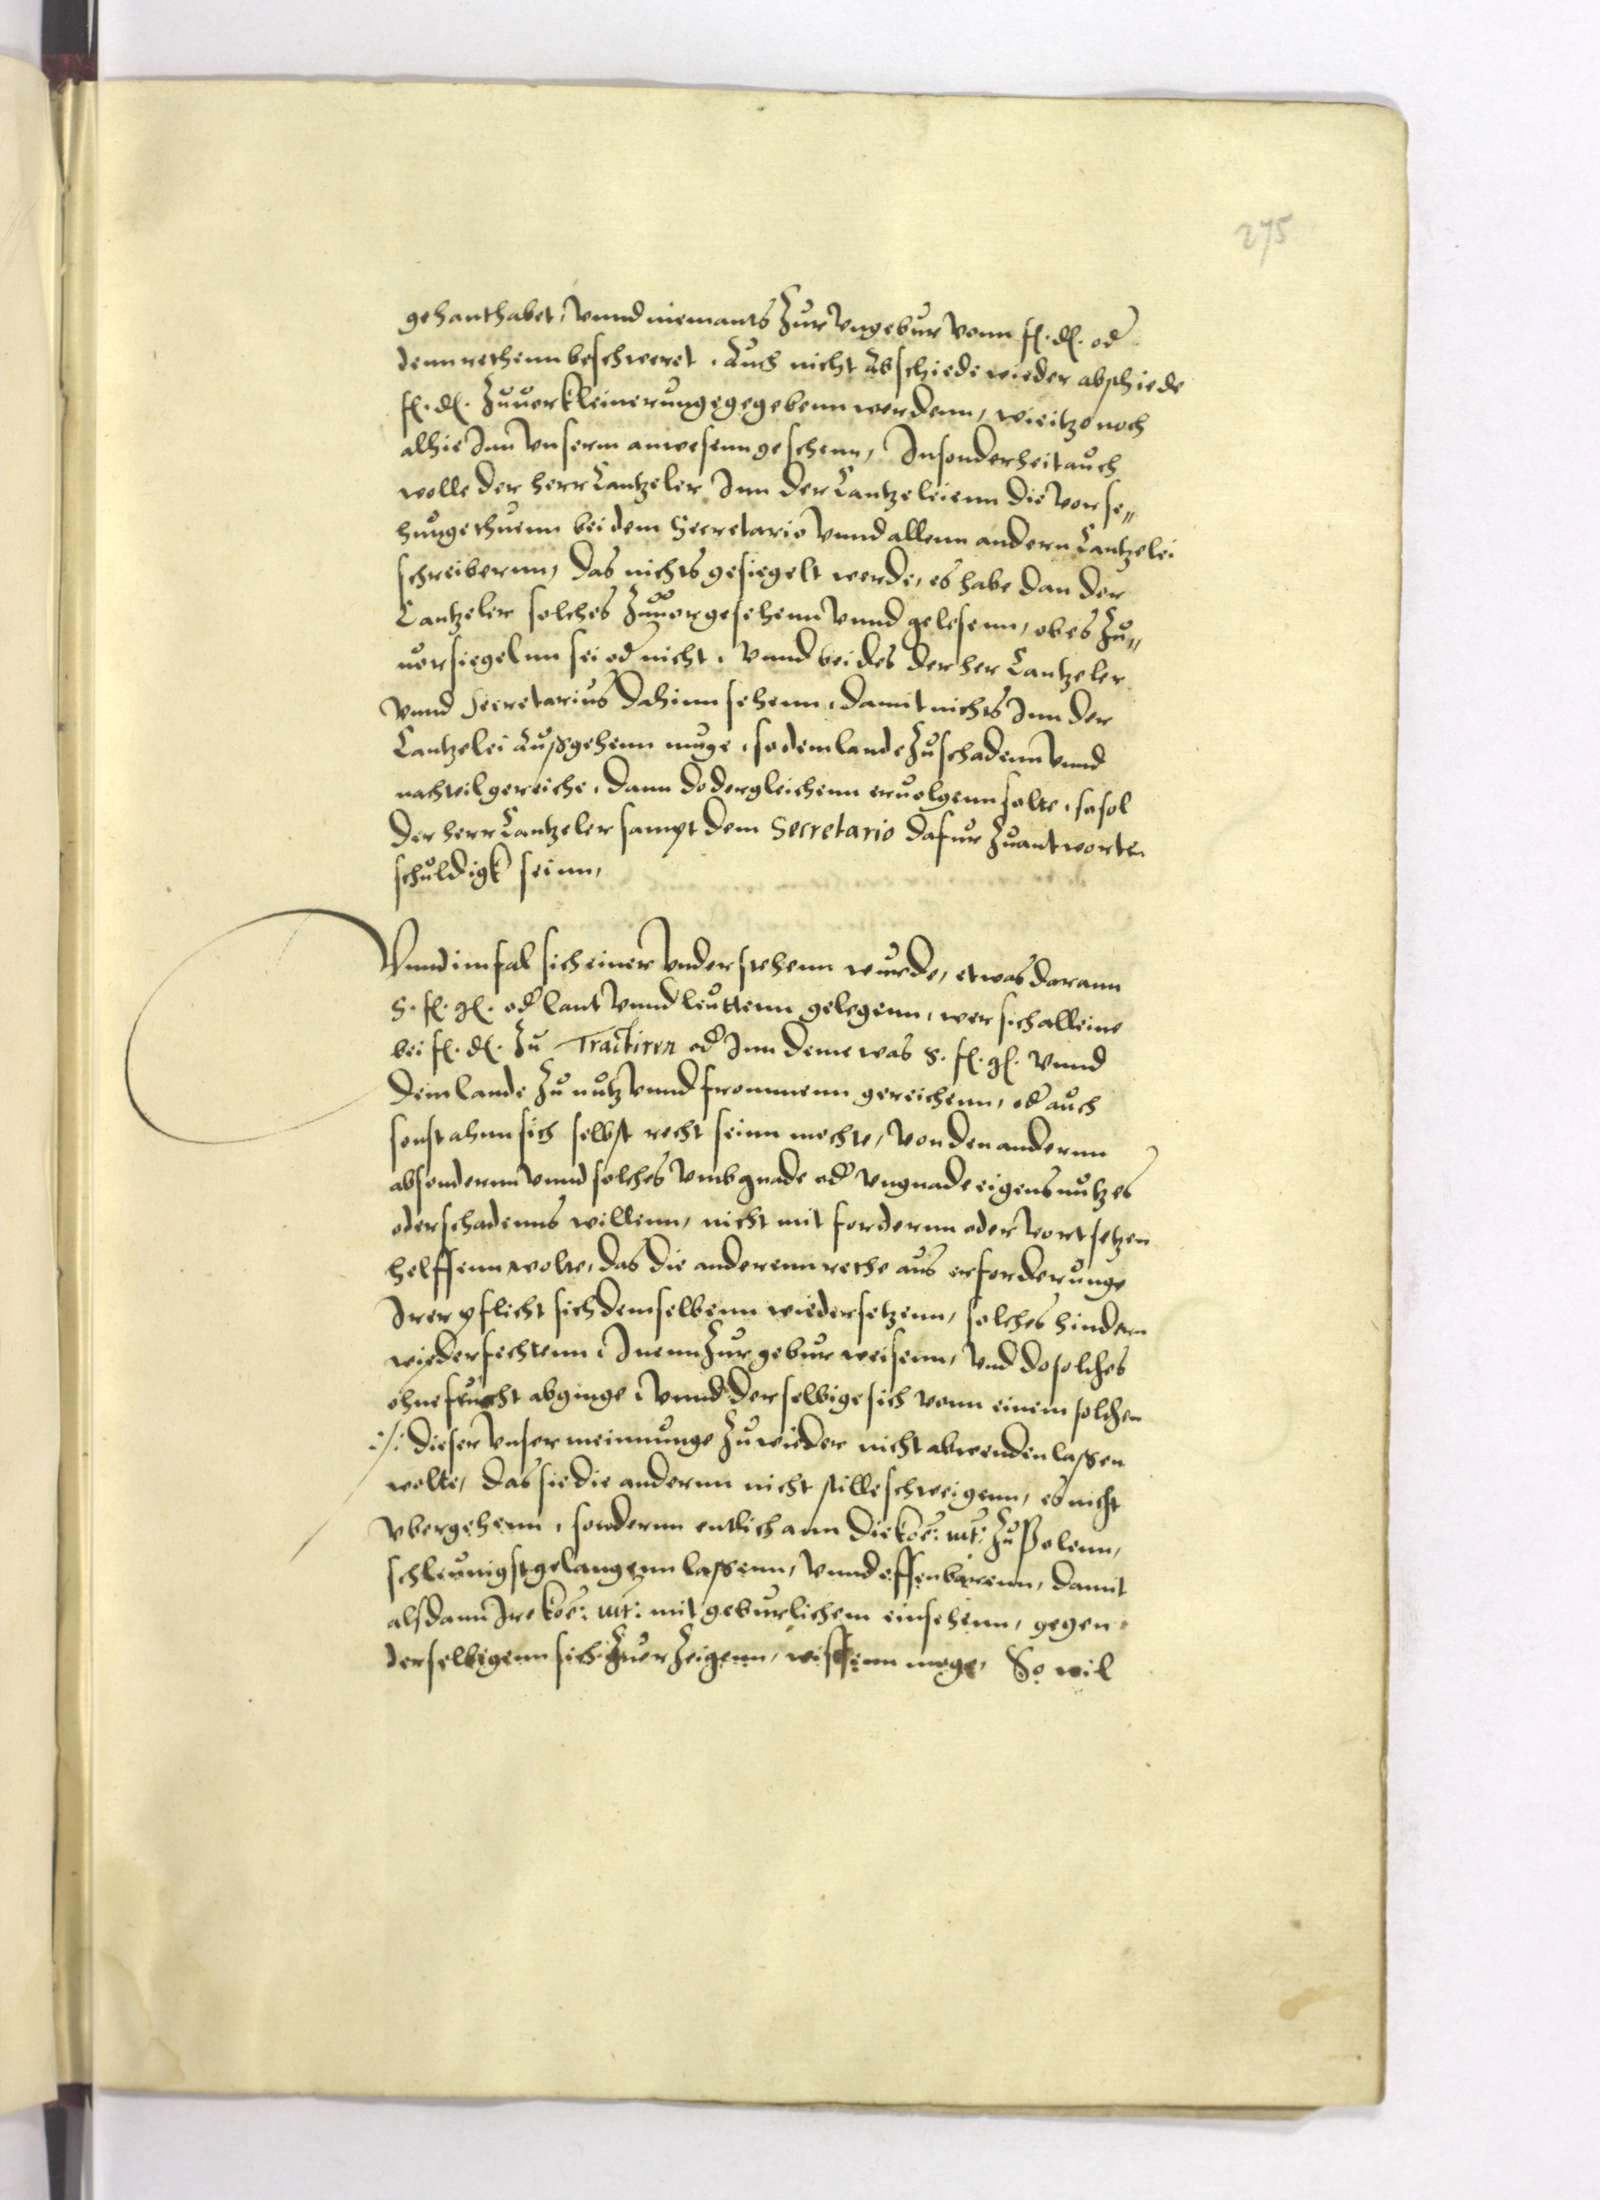 275
gehanthabet, vnnd niemants zur vngebur vonn f. d. od
denn rethenn beschweret. Auch nicht abschiede wieder abschiede
f. d. zuuorkleinerunge gegebenn werdenn, wie itzo noch
alhie Inn vnserm anwesenn geschenn, Insonderheit auch
wolle der herr Cantzeler Inn der Cantzeleienn die vorse„
hunge thuenn bei dem Secretario vnnd allenn andern Cantzelei
schreibernn, das nichts gesiegelt werde, es habe dan der
Cantzeler solches zuuor gesehenn vnnd gelesenn, ob es zu„
uorsiegelnn sei od nicht, vnnd beides der her Cantzeler
vnnd Secretarius dahinn sehenn, damit nichts Inn der
Cantzelei außgehenn muge, so dem lande zu schadenn vnnd
nachteil gereiche, dann do dergleichenn eruolgenn solte, so sol
der herr Cantzeler sampt dem Secretario dafur zuantworten
schuldigk seinn,
Vnnd im fal sich einer vnderstehenn wurde, etwas darann
S. f. g. od lant vnnd leuttenn gelegenn, wer sich alleine
bei f. d. zu Tractiren od Inn deme was S. f. g. vnnd
dem lande zu nutz vnnd frommenn gereichenn, od auch
sonst ahnn sich selbst recht seinn mochte, von den andernn
absondernn vnnd solches vmb gnade od vngnade eigens nutzes
oder schadenns willenn, nicht mit fordernn oder vortsetzen
helffenn wolte, das die anderenn rethe aus erforderunge
Irer pflicht sich demselbenn wiedersetzenn, solches hindern
wiederfechtenn, Inenn zur gebur weisenn, vnd do solches
ohne frucht abginge, vnnd derselbige sich vonn einem solchen
:/: dieser vnser meinnunge zuwieder nicht abwenden lassen
wolte, das sie die andernn nicht stilleschweigenn, es nicht
vbergehenn, sondernn entlich ann die koe: mt: zu Polenn,
schleunigst gelangenn lassenn, vnnd offenbarenn, damit
alsdann Ire koe: mt: mit geburlichem einsehenn, gegen
derselbigenn sich zuerzeigenn, wissenn moge, So wil